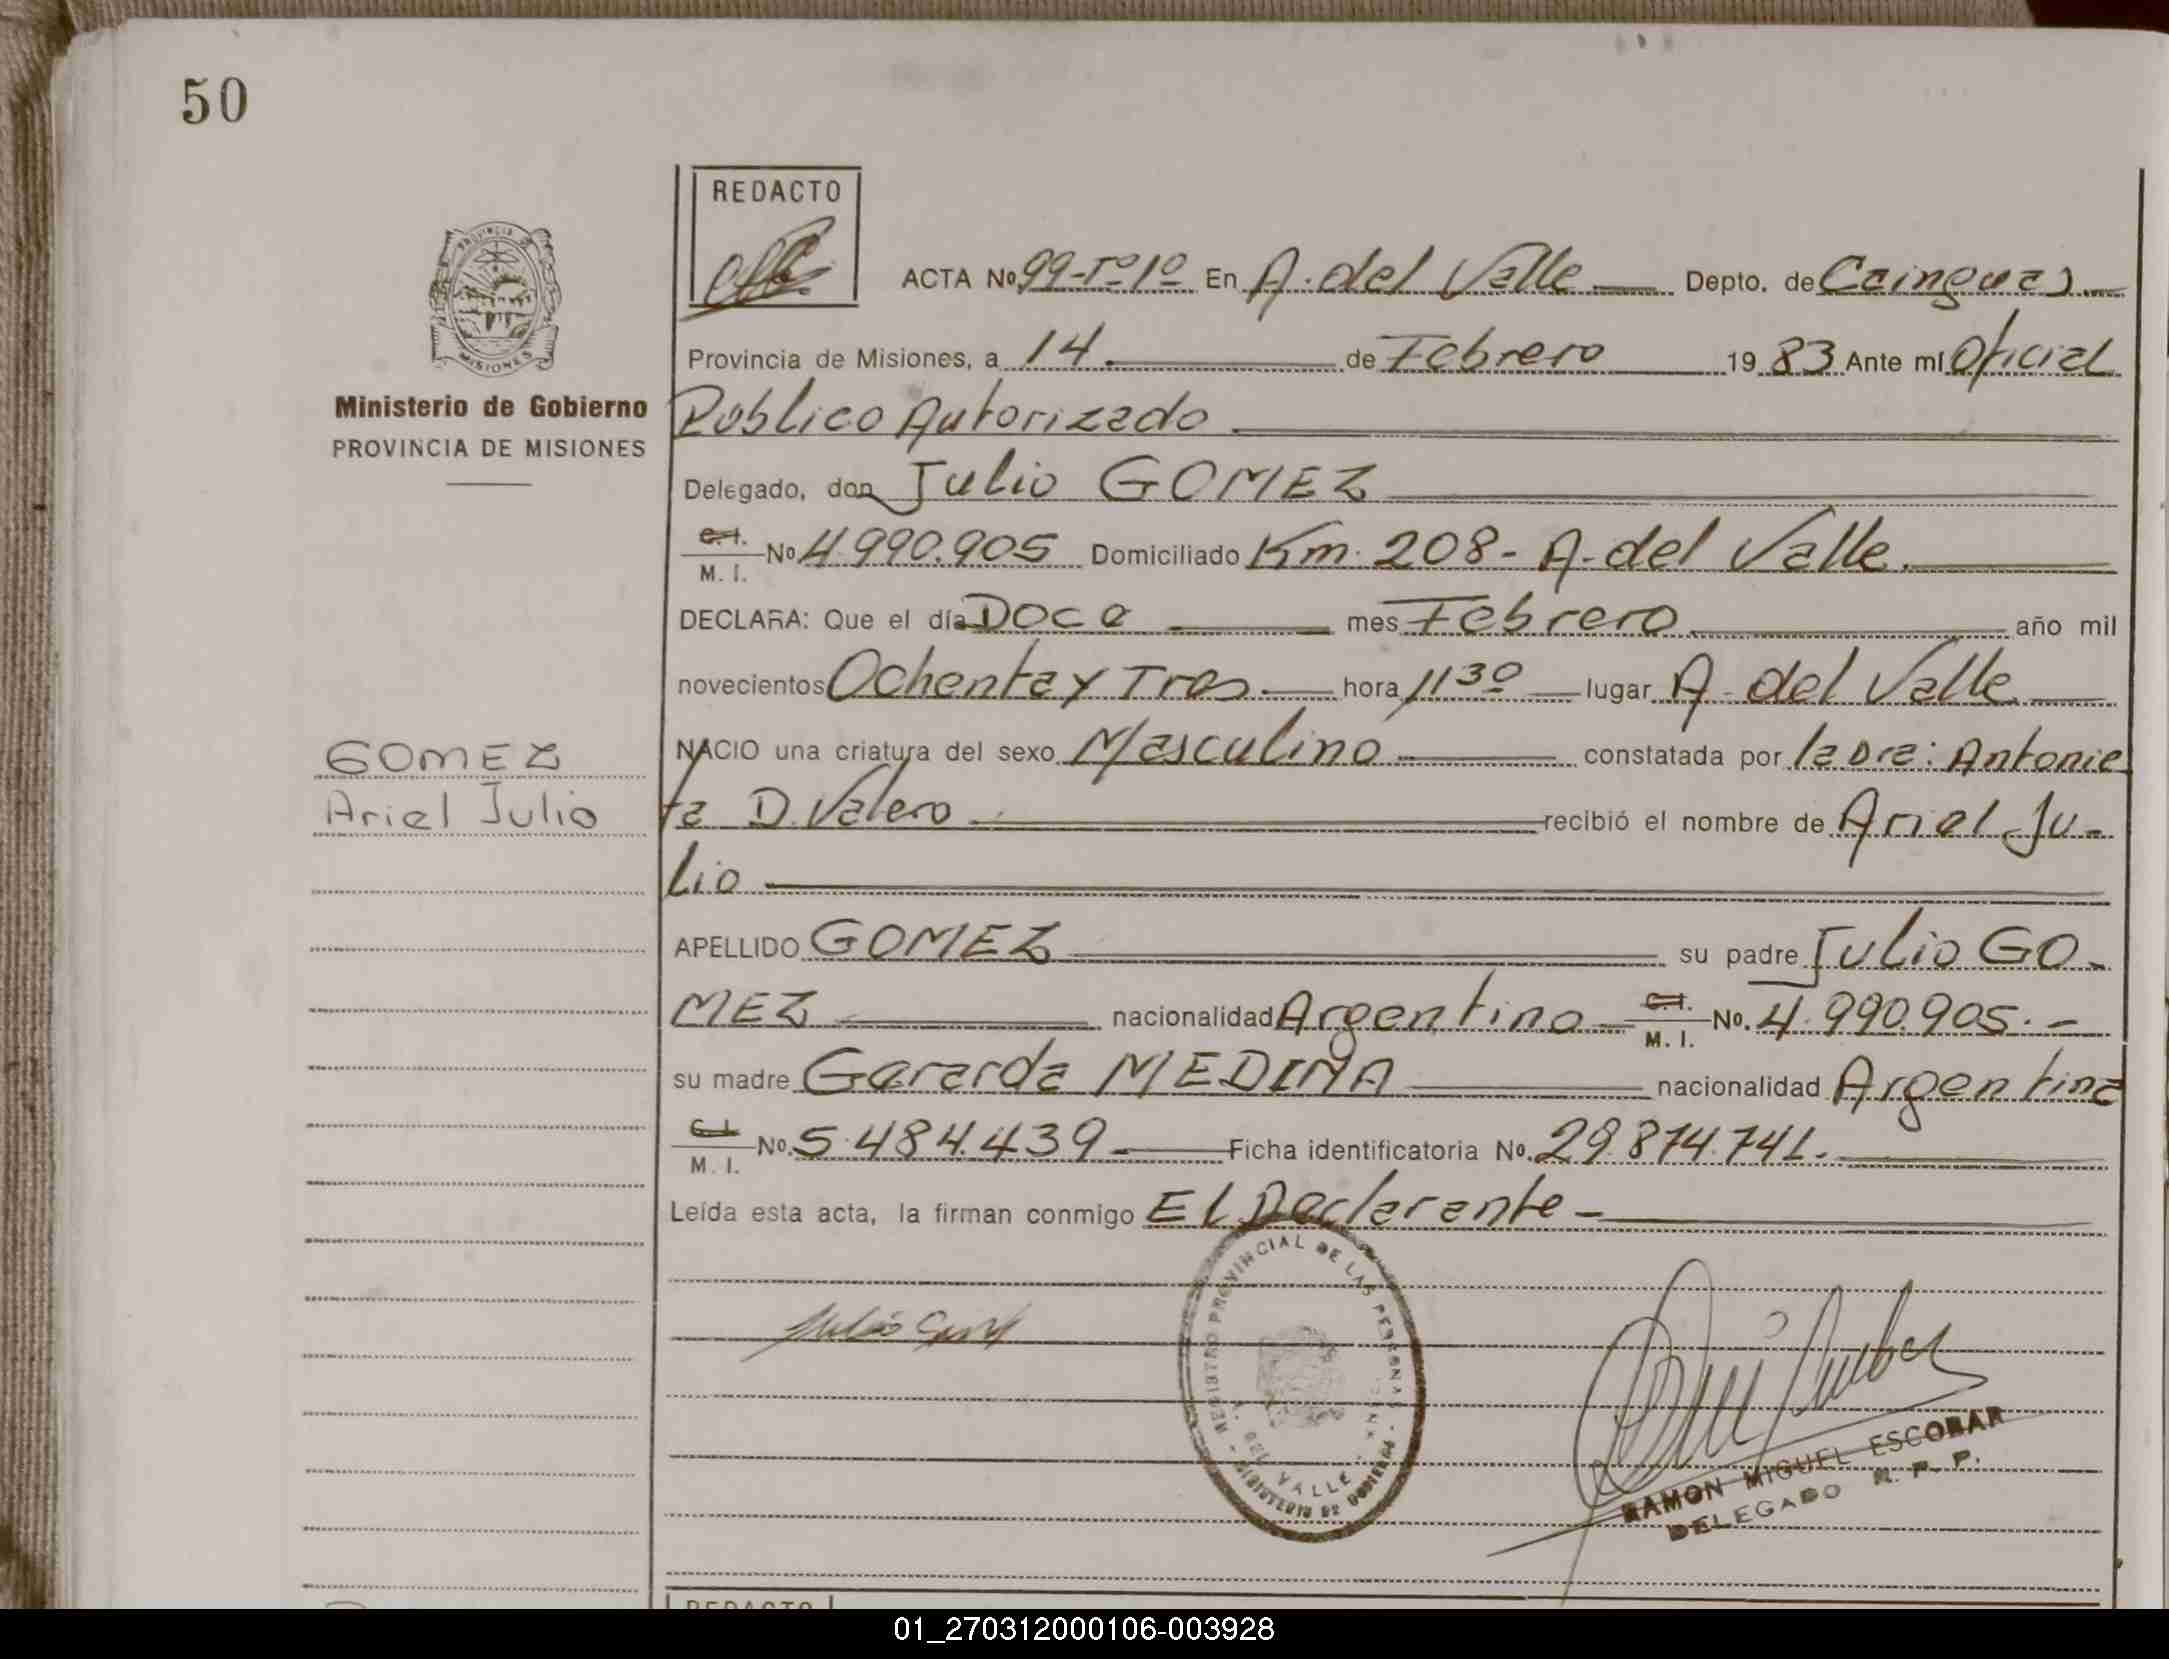 50
REDACTO
ACTA Nº 99-Tº 1º En A. del Valle Depto. de Cainguas
Provincia de Misiones, a 14 de Febrero 1983 Ante mí Oficial
Ministerio de Gobierno
Público Autorizado
PROVINCIA DE MISIONES
Delegado, don Julio GOMEZ
C.I. M. I. Nº 4.990.905 Domiciliado Km. 208- A. del Valle.
DECLARA: Que el día Doce mes Febrero año mil
novecientos Ochenta y Tres hora 11 30 lugar A. del Valle
GOMEZ
NACIO una criatura del sexo Masculino constatada por la Dra: Antonie
Ariel Julio
ta D. Valero recibió el nombre de Ariel Ju-
lio
APELLIDO GOMEZ su padre Julio GO-
MEZ nacionalidad Argentino C.I. M. I. No. 4.990.905.-
su madre Gerarda MEDINA nacionalidad Argentina
C.I. M. I. No. 5.484.439 Ficha identificatoria No. 29.874.741.
Leída esta acta, la firman conmigo El Declarante -
REGISTRO PROVINCIAL DE LAS PERSONAS
A. DEL VALLE
MINISTERIO DE GOBIERNO
RAMON MIGUEL ESCOBAR
DELEGADO R. P. P.
REDACTO
01_270312000106-003928